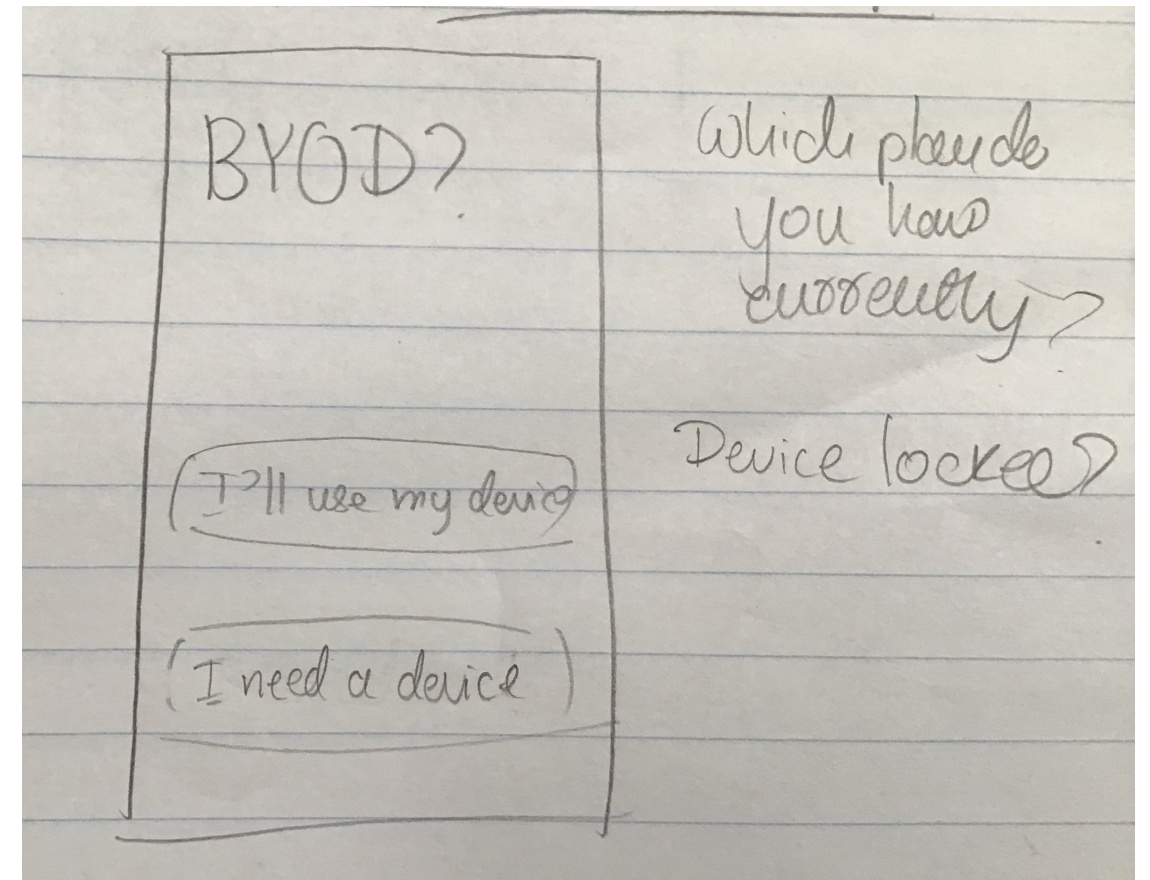 BYOD?
I'll use my device
I need a device
Which plan do
you have
currently?
Device locked?